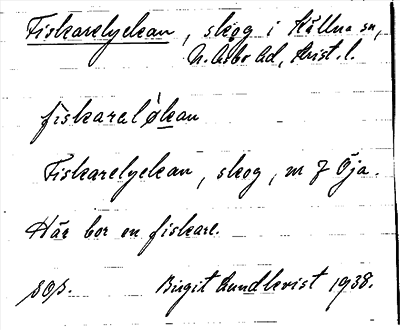 Fiskarelyckan, skog i Källna sn,
N. Åsbo hd, Krist. l.
fiskaralø̀kan
Fiskarelyckan, skog, m 7 Öja.
Här bor en fiskare.
Birgit Lundkvist 1938.